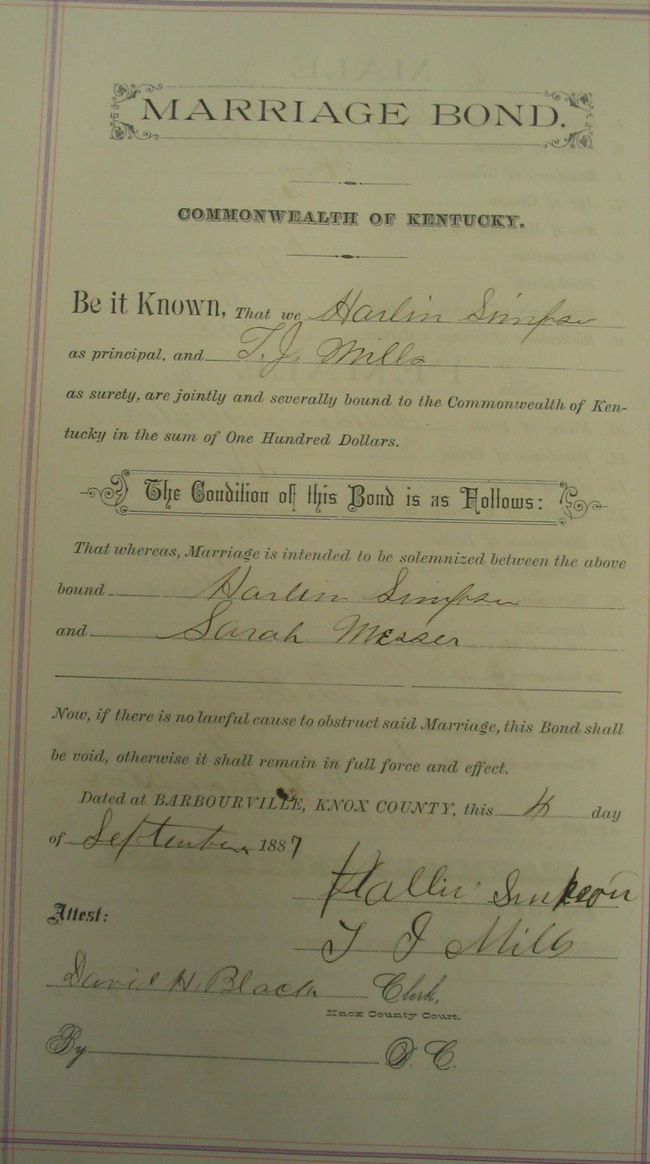 MARRIAGE BOND.
COMMONWEALTH OF KENTUCKY.
Be it Known, That we Harlin Simpson
as principal, and T. J. Mills
as surety, are jointly and severally bound to the Commonwealth of Ken-
tucky in the sum of One Hundred Dollars.
The Condition of this Bond is as Follows:
That whereas, Marriage is intended to be solemnized between the above
bound Harlin Simpson
and Sarah Messer
Now, if there is no lawful cause to obstruct said Marriage, this Bond shall
be void, otherwise it shall remain in full force and effect.
Dated at BARBOURVILLE, KNOX COUNTY, this 4 day
of September 1887
Simpson
Attest:
T J Mills
David H. Black Clerk,
Knox County Court.
By D. C.